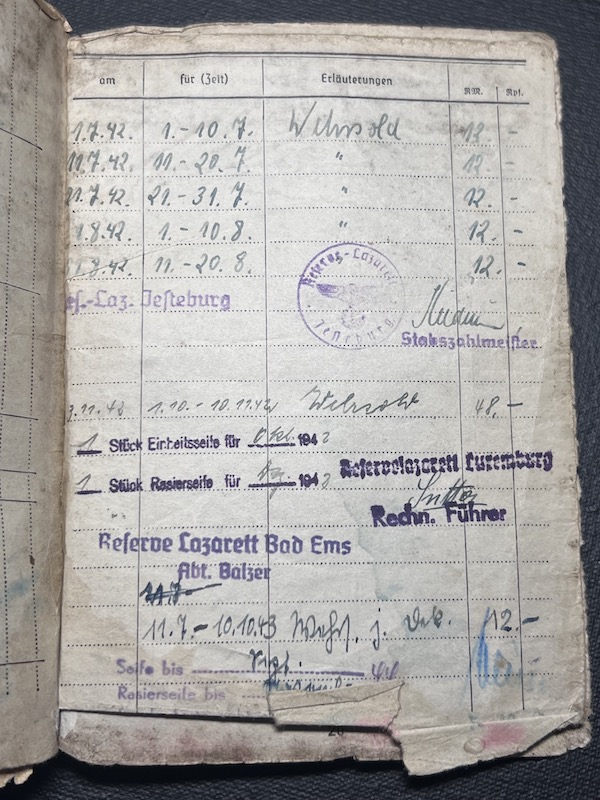 am für (Zeit) Erläuterungen RM. Rpf.
1.7.42. 1.-10.7. Wehrsold 12 -
11.7.42. 11.-20.7. " 12 -
21.7.42. 21.-31.7. " 12. -
1.8.42. 1.-10.8. " 12. -
11.8.42. 11.-20.8. 12. -
Reserve-Lazarett
Jesteburg
es.-Laz. Jesteburg
Stabszahlmeister
.11.42 1.10.- 10.11.42 Wehrsold 48,-
1 Stück Einheitsseife für Okt. 1942
1 Stück Rasierseife für 1942
Reservelazarett Luxemburg
Rechn. Führer
Reserve Lazarett Bad Ems
Abt. Balzer
11.7.-10.10.43 Wehrs. 12 -
Seife bis 44
Rasierseife bis